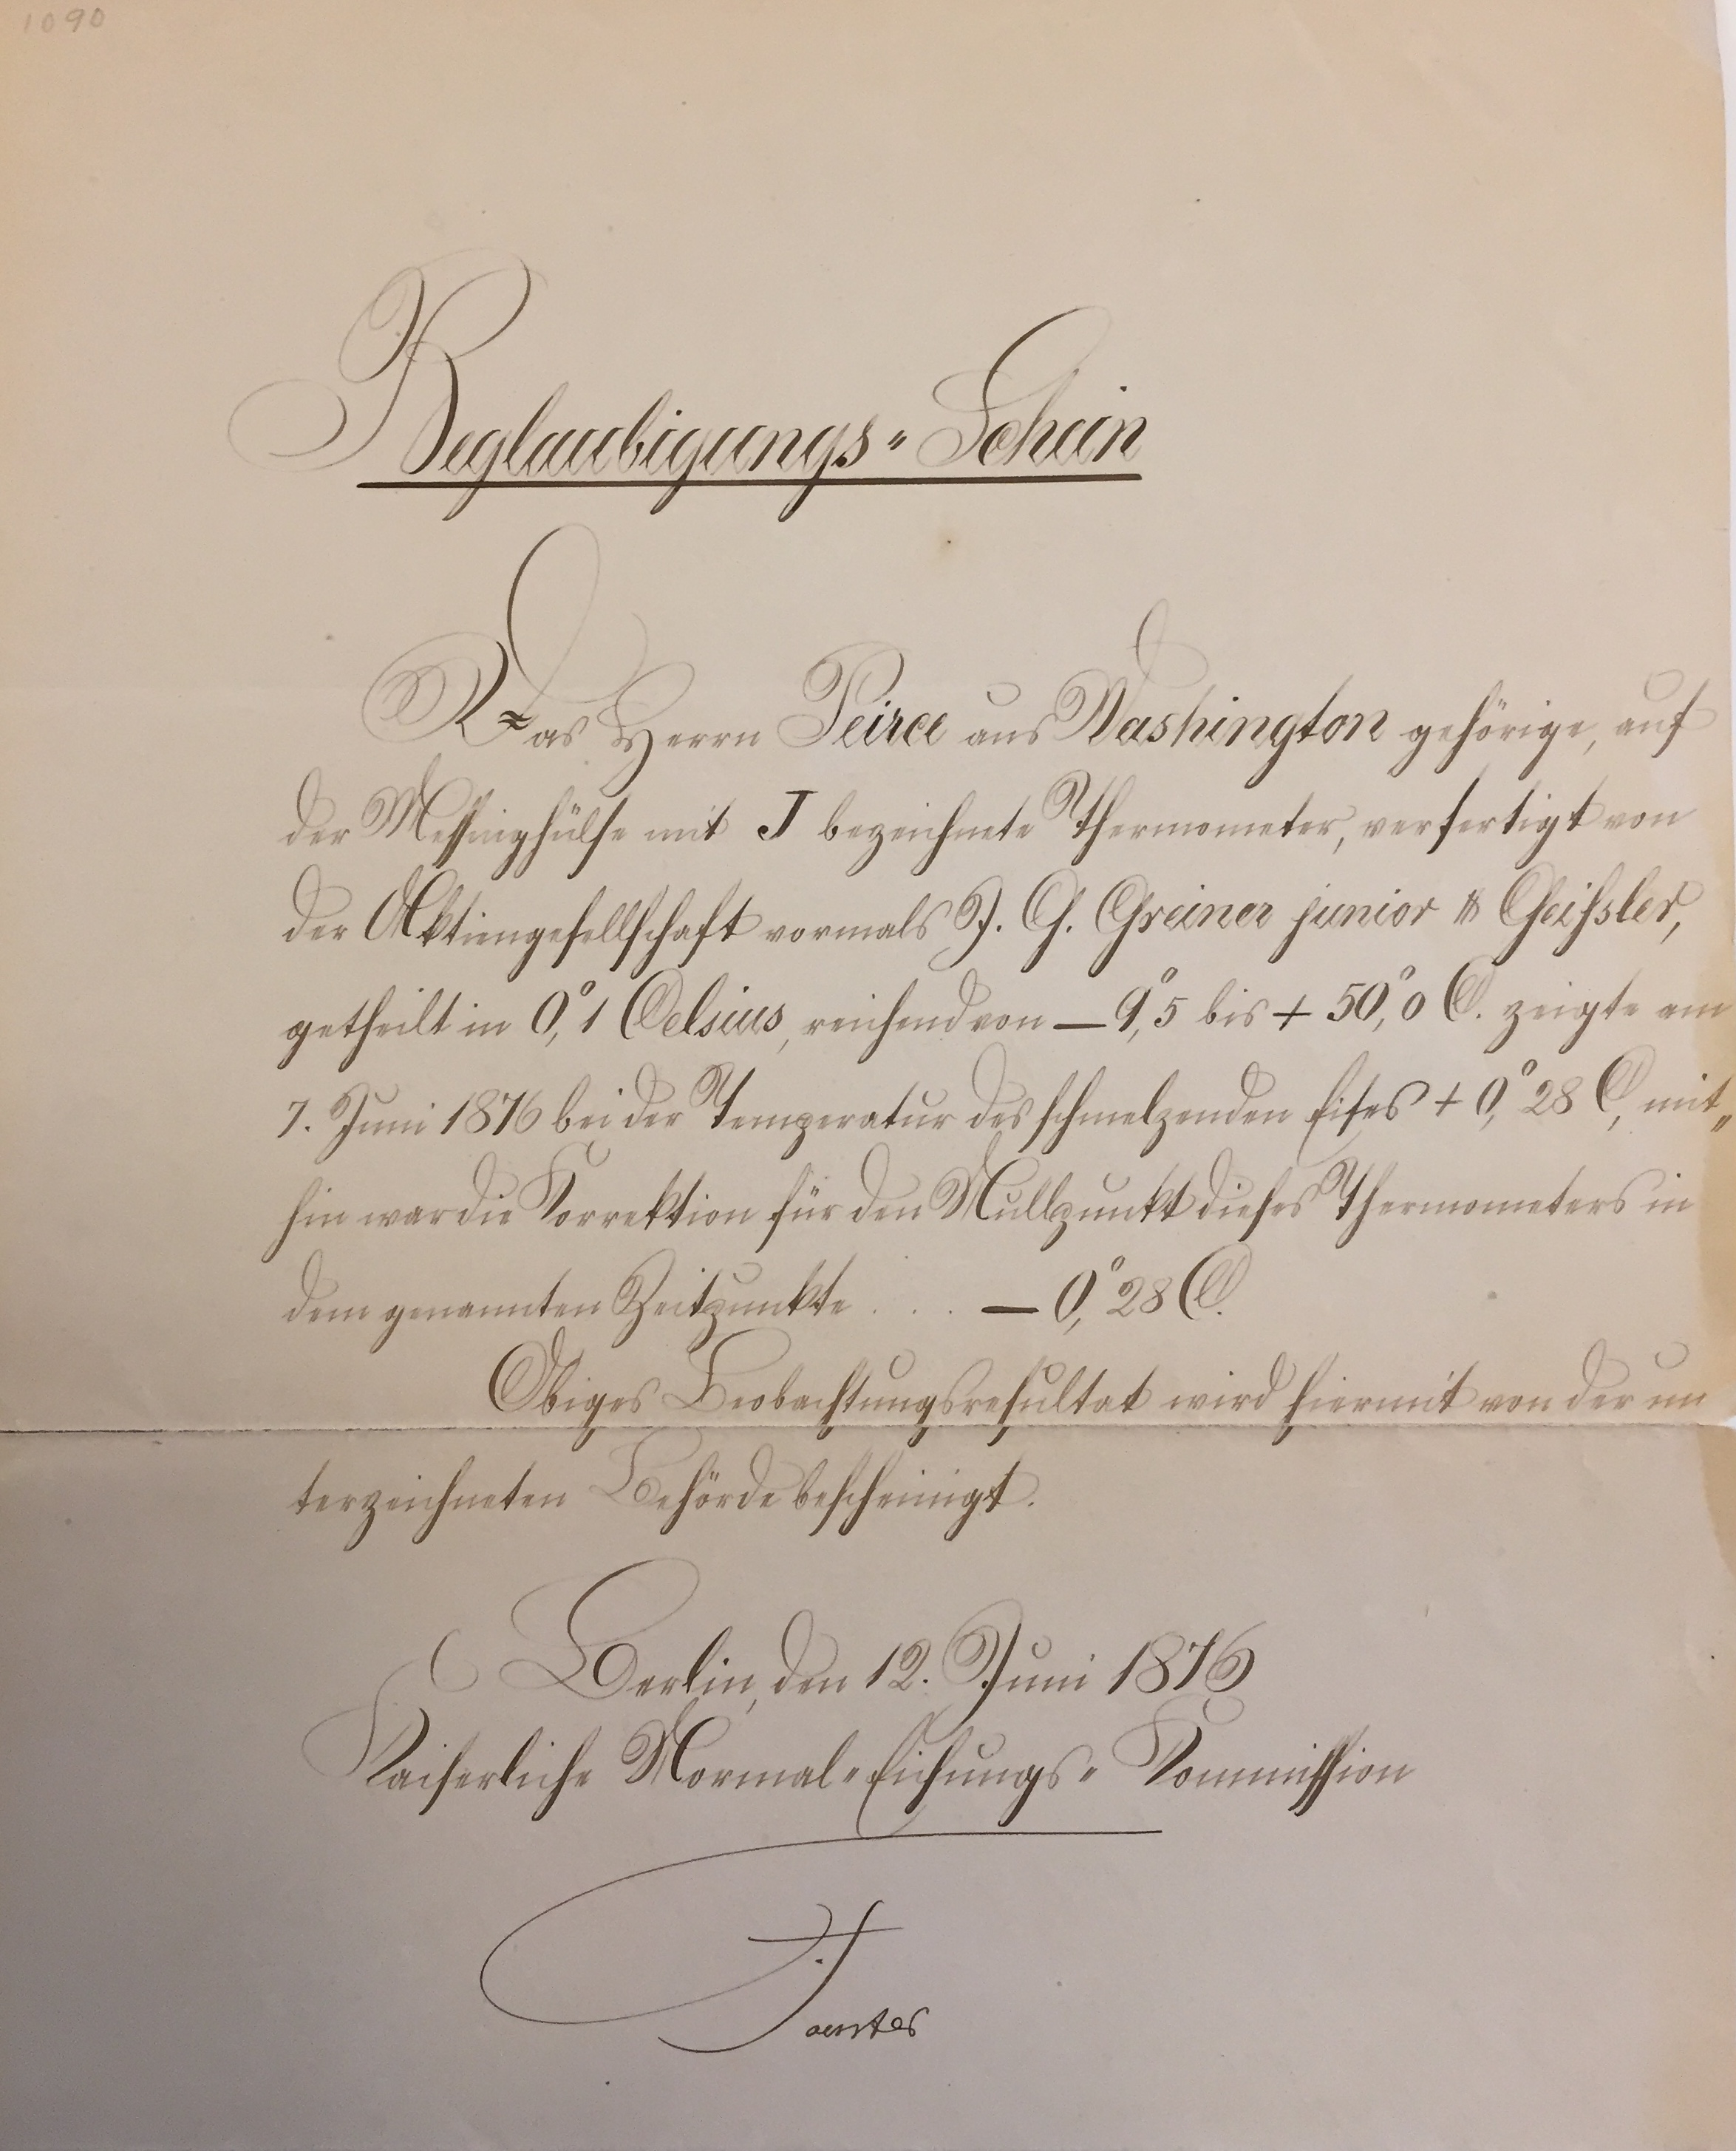 1090
Beglaubigungs-Schein
Das Herrn Peirce aus Washington gehörige, auf
der Messinghülse mit J bezeichnete Thermometer, verfertigt von
der Aktiengesellschaft vormals J. G. Greiner junior & Geissler,
getheilt in 0,°1 Celsius, reichend von – 9,°5 bis + 50,°0 C. zeigte am
7. Juni 1876 bei der Temperatur des schmelzenden Eises + 0,°28 C, mit-
hin war die Korrektion für den Nullpunkt dieses Thermometers in
dem genannten Zeitpunkte . . . . – 0,°28 C.
Obiges Beobachtungsresultat wird hiermit von der un
terzeichneten Behörde bescheinigt.
Berlin, den 12. Juni 1876
Kaiserliche Normal-Eichungs-Kommission
Foerster